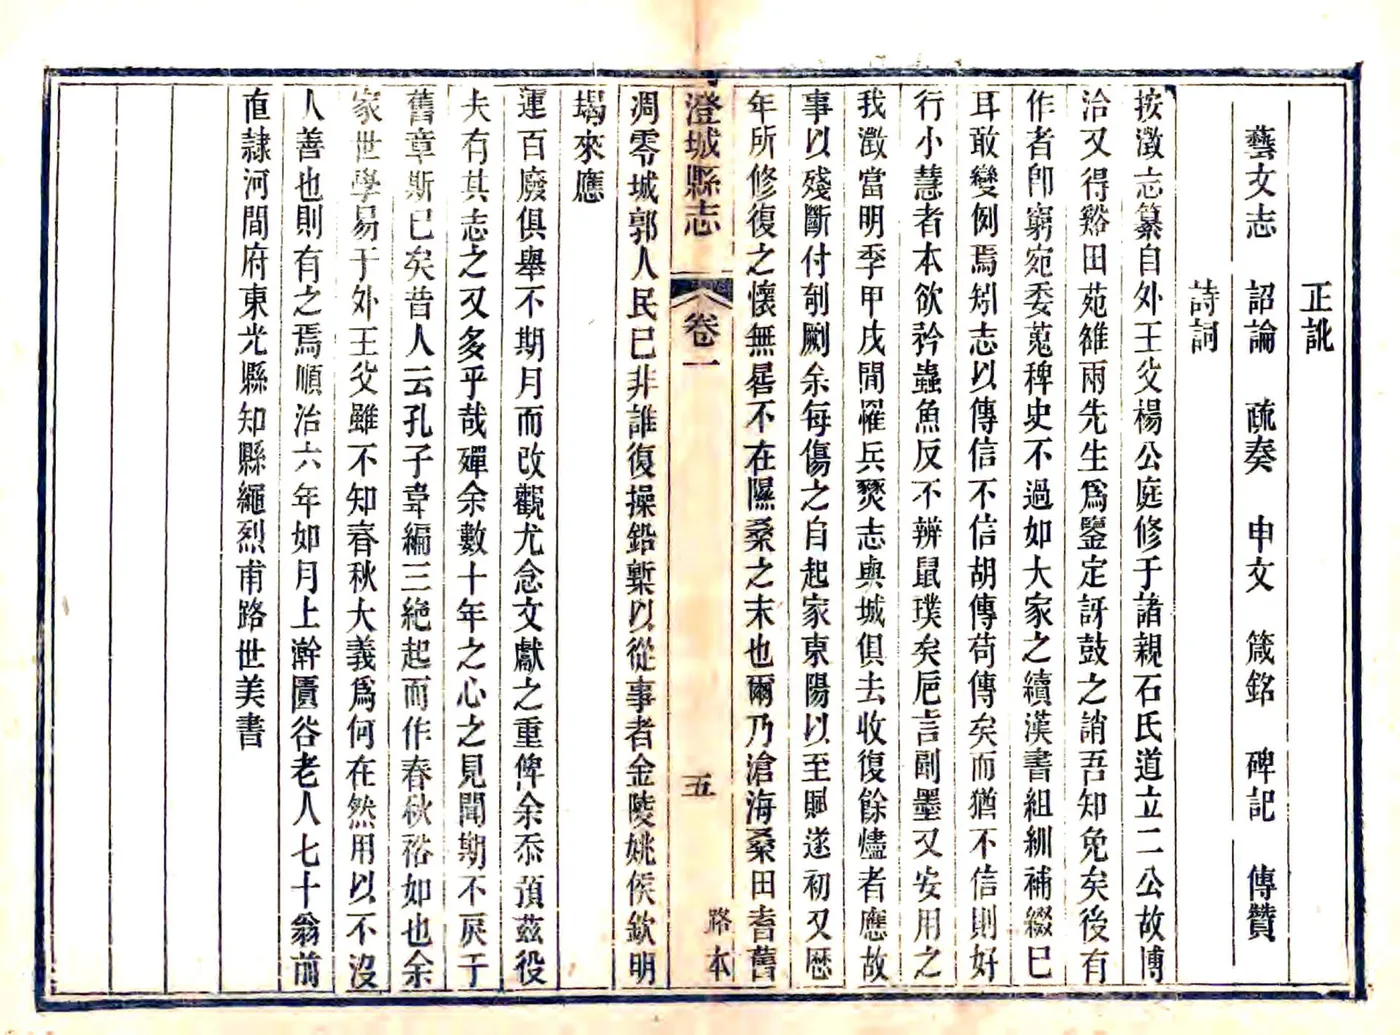 正訛
藝文志 詔論 疏奏 申文 箴銘 碑記 傳贊
詩詞
按澂志纂自外王父楊公庭修于諸親石氏道立二公故博
洽又得谿田苑雒兩先生爲鑒定訝鼓之誚吾知免矣後有
作者卽窮宛委蒐稗史不過如大家之續漢書組紃補綴巳
耳敢變例焉矧志以傳信不信胡傳苟傳矣而猶不信則好
行小慧者本欲矜蟲魚反不辨鼠璞矣巵言剾墨又安用之
我澂當明季甲戌間罹兵燹志與城俱去收復餘燼者應故
事以殘斷付剞劂余每傷之自起家東陽以至賦遂初又歷
年所修復之懷無晷不在隰桑之末也爾乃滄海桑田耆舊
澄城縣志 卷一 五 路 本
凋零城郭人民已非誰復操鉛槧以從事者金陵姚侯欽明
朅來應
運百廢俱舉不期月而改觀尤念文獻之重俾余忝預茲役
夫有其志之又多乎哉殫余數十年之心之見聞期不戾于
舊章斯巳矣昔人云孔子韋編三絶起而作春秋裕如也余
家世學易于外王父雖不知春秋大義爲何在然用以不沒
人善也則有之焉順治六年如月上澣匱谷老人七十翁前
直隷河間府東光縣知縣繩烈甫路世美書